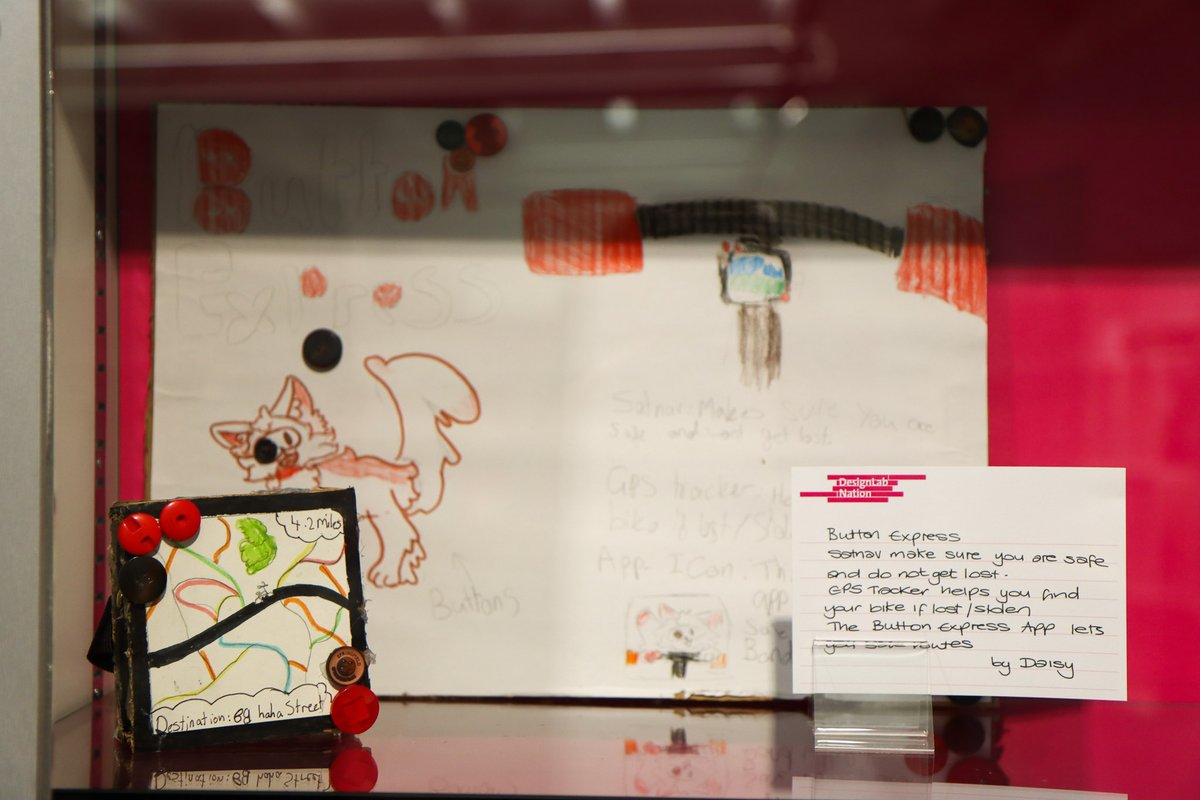 Button
Express
Satnav: Makes sure you are
safe and not get lost
GPS tracker. He
bike if lost/stol
App Icon. Th
app
Buttons
4.2 miles
Destination: 69 haha Street
DesignLab
Nation
Button Express
Satnav make sure you are safe
and do not get lost.
GPS Tracker helps you find
your bike if lost/stolen
The Button Express App lets
you save routes
by Daisy